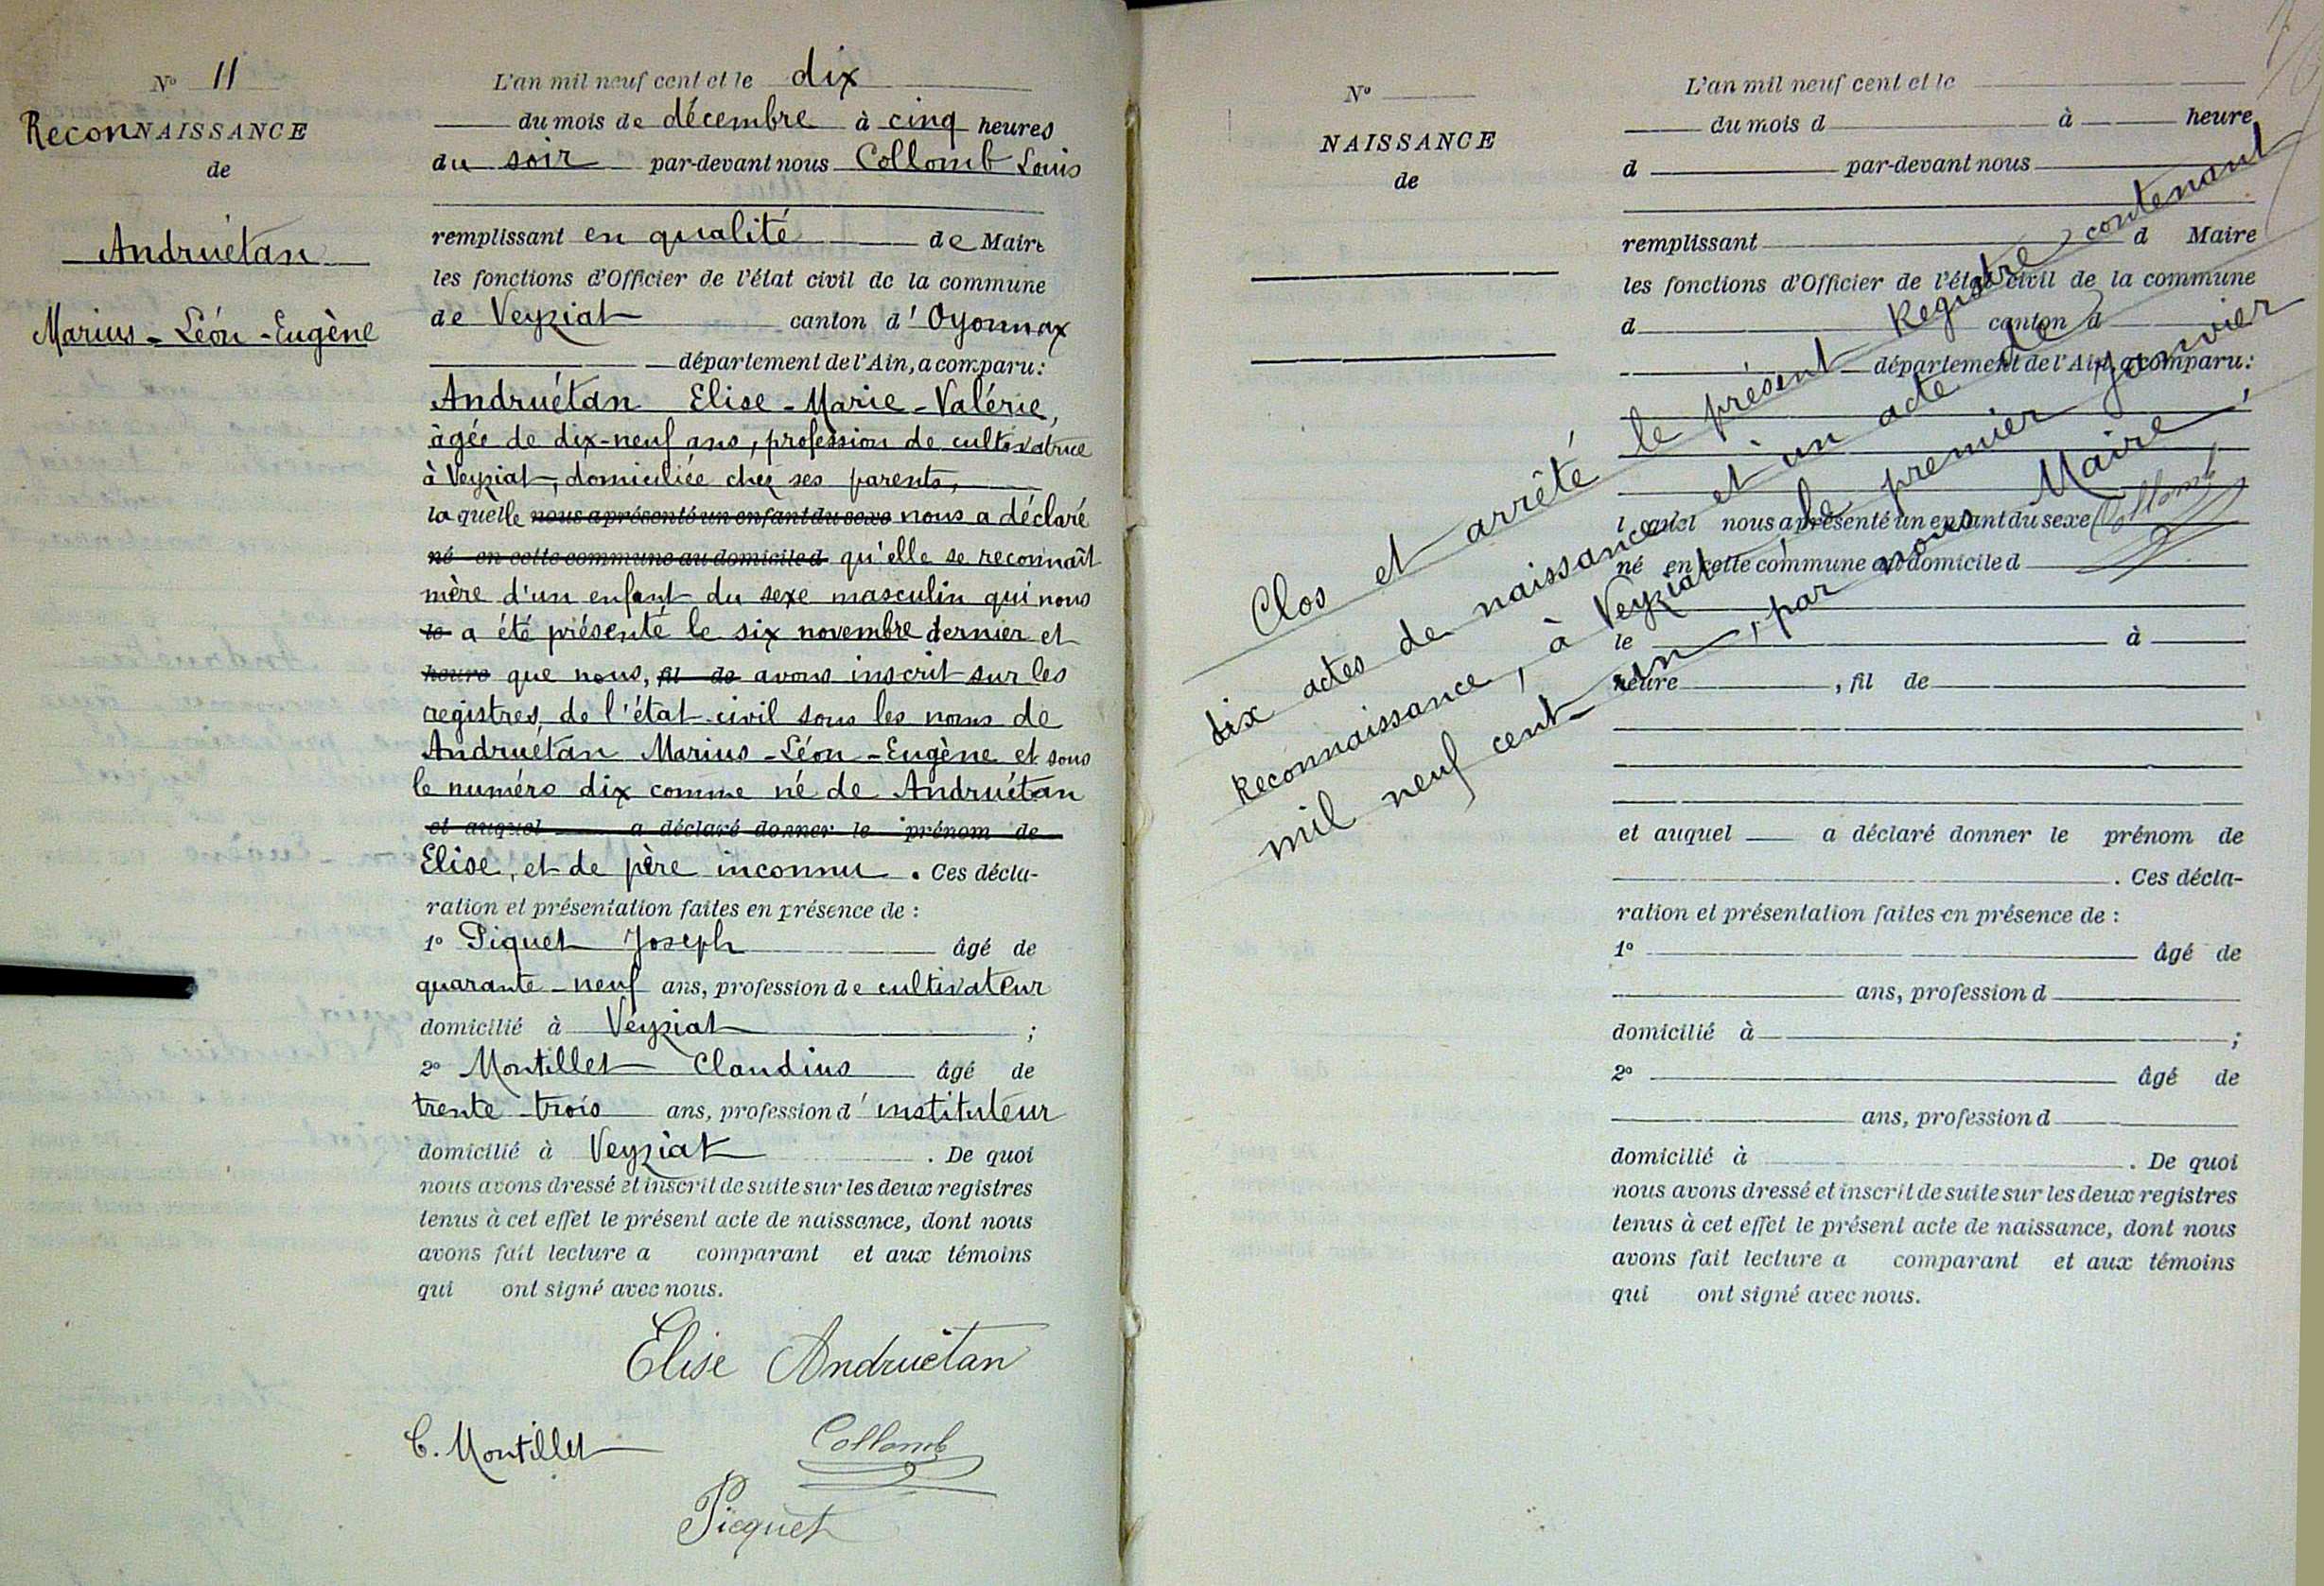 N° 11
ReconNAISSANCE
de
Andruétan
Marius - Léon - Eugène
L'an mil neuf cent et le dix
du mois de décembre à cinq heures
du soir par-devant nous Collomb Louis
remplissant en qualité de Maire
les fonctions d'Officier de l'état civil de la commune
de Veyziat canton d'Oyonnax
département de l'Ain, a comparu :
Andruétan Elise - Marie - Valérie,
âgée de dix-neuf ans, profession de cultivatrice
à Veyziat, domiciliée chez ses parents,
laquelle nous a présenté un enfant du sexe nous a déclaré
né en cette commune au domicile d qu'elle se reconnaît
mère d'un enfant du sexe masculin qui nous
le a été présenté le six novembre dernier et
heure que nous, fil de avons inscrit sur les
registres de l'état-civil sous les noms de
Andruétan Marius - Léon - Eugène et sous
le numéro dix comme né de Andruétan
et auquel a déclaré donner le prénom de
Elise, et de père inconnu. Ces décla-
ration et présentation faites en présence de :
1° Piquet Joseph âgé de
quarante-neuf ans, profession de cultivateur
domicilié à Veyziat ;
2° Montillet Claudius âgé de
trente-trois ans, profession d'instituteur
domicilié à Veyziat. De quoi
nous avons dressé et inscrit de suite sur les deux registres
tenus à cet effet le présent acte de naissance, dont nous
avons fait lecture a comparant et aux témoins
qui ont signé avec nous.
Elise Andruétan
C. Montillet
Collomb
Picquet
N°
NAISSANCE
de
L'an mil neuf cent et le
du mois d à heure
d par-devant nous
remplissant d Maire
les fonctions d'Officier de l'état civil de la commune
d canton d
département de l'Ain, a comparu :
l quel nous a présenté un enfant du sexe
né en cette commune au domicile d
le à
heure , fil de
et auquel a déclaré donner le prénom de
. Ces décla-
ration et présentation faites en présence de :
1° âgé de
ans, profession d
domicilié à ;
2° âgé de
ans, profession d
domicilié à . De quoi
nous avons dressé et inscrit de suite sur les deux registres
tenus à cet effet le présent acte de naissance, dont nous
avons fait lecture a comparant et aux témoins
qui ont signé avec nous.
Clos et arrêté le présent Registre contenant
dix actes de naissance et un acte de
Reconnaissance, à Veyziat, le premier janvier
mil neuf cent un, par nous Maire,
Collomb